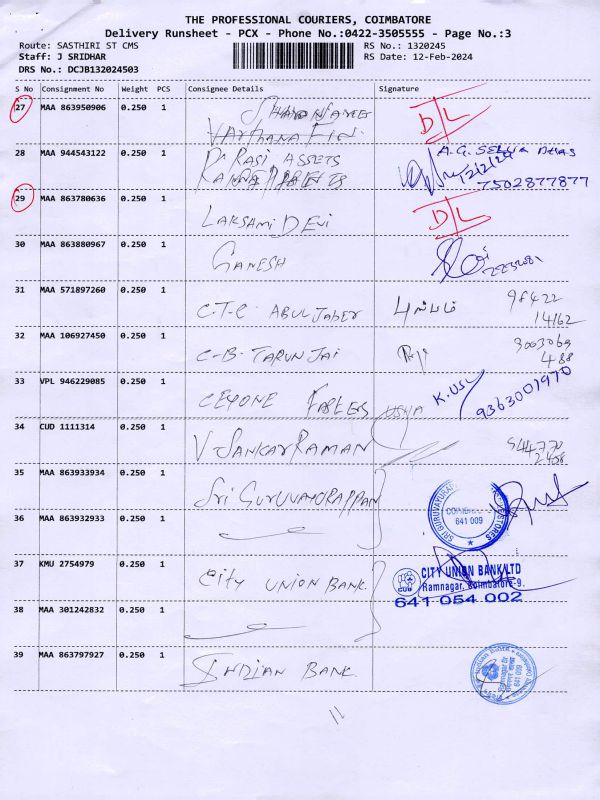 THE PROFESSIONAL COURIERS, COIMBATORE
Delivery Runsheet - PCX - Phone No.:0422-3505555 - Page No.:3
Route: SASTHIRI ST CMS RS No.: 1320245
Staff: J SRIDHAR RS Date: 12-Feb-2024
DRS No.: DCJB132024503
S No Consignment No Weight PCS Consignee Details Signature
27 MAA 863950906 0.250 1 D/L
VARTHANA FIN
28 MAA 944543122 0.250 1 ASSETS A.G. SELVA
12/2/24
7502877877
29 MAA 863780636 0.250 1 D/L
LAKSHMI DEVI
30 MAA 863880967 0.250 1 GANESH
31 MAA 571897260 0.250 1 C.T.C. ABUL JABER 98422
14162
32 MAA 106927450 0.250 1 C-B- TARUN JAI 3003069
488
33 VPL 946229085 0.250 1 CEYONE USHA K. USHA 9363001970
34 CUD 1111314 0.250 1 V SANKAR RAMAN 944770
35 MAA 863933934 0.250 1 SRI GURUVAYORAPPAN
COIMBATORE
641 009
36 MAA 863932933 0.250 1
37 KMU 2754979 0.250 1 CITY UNION BANK. CITY UNION BANK LTD
CUB Ramnagar, Coimbatore-9.
641 054 002
38 MAA 301242832 0.250 1
39 MAA 863797927 0.250 1 INDIAN BANK.